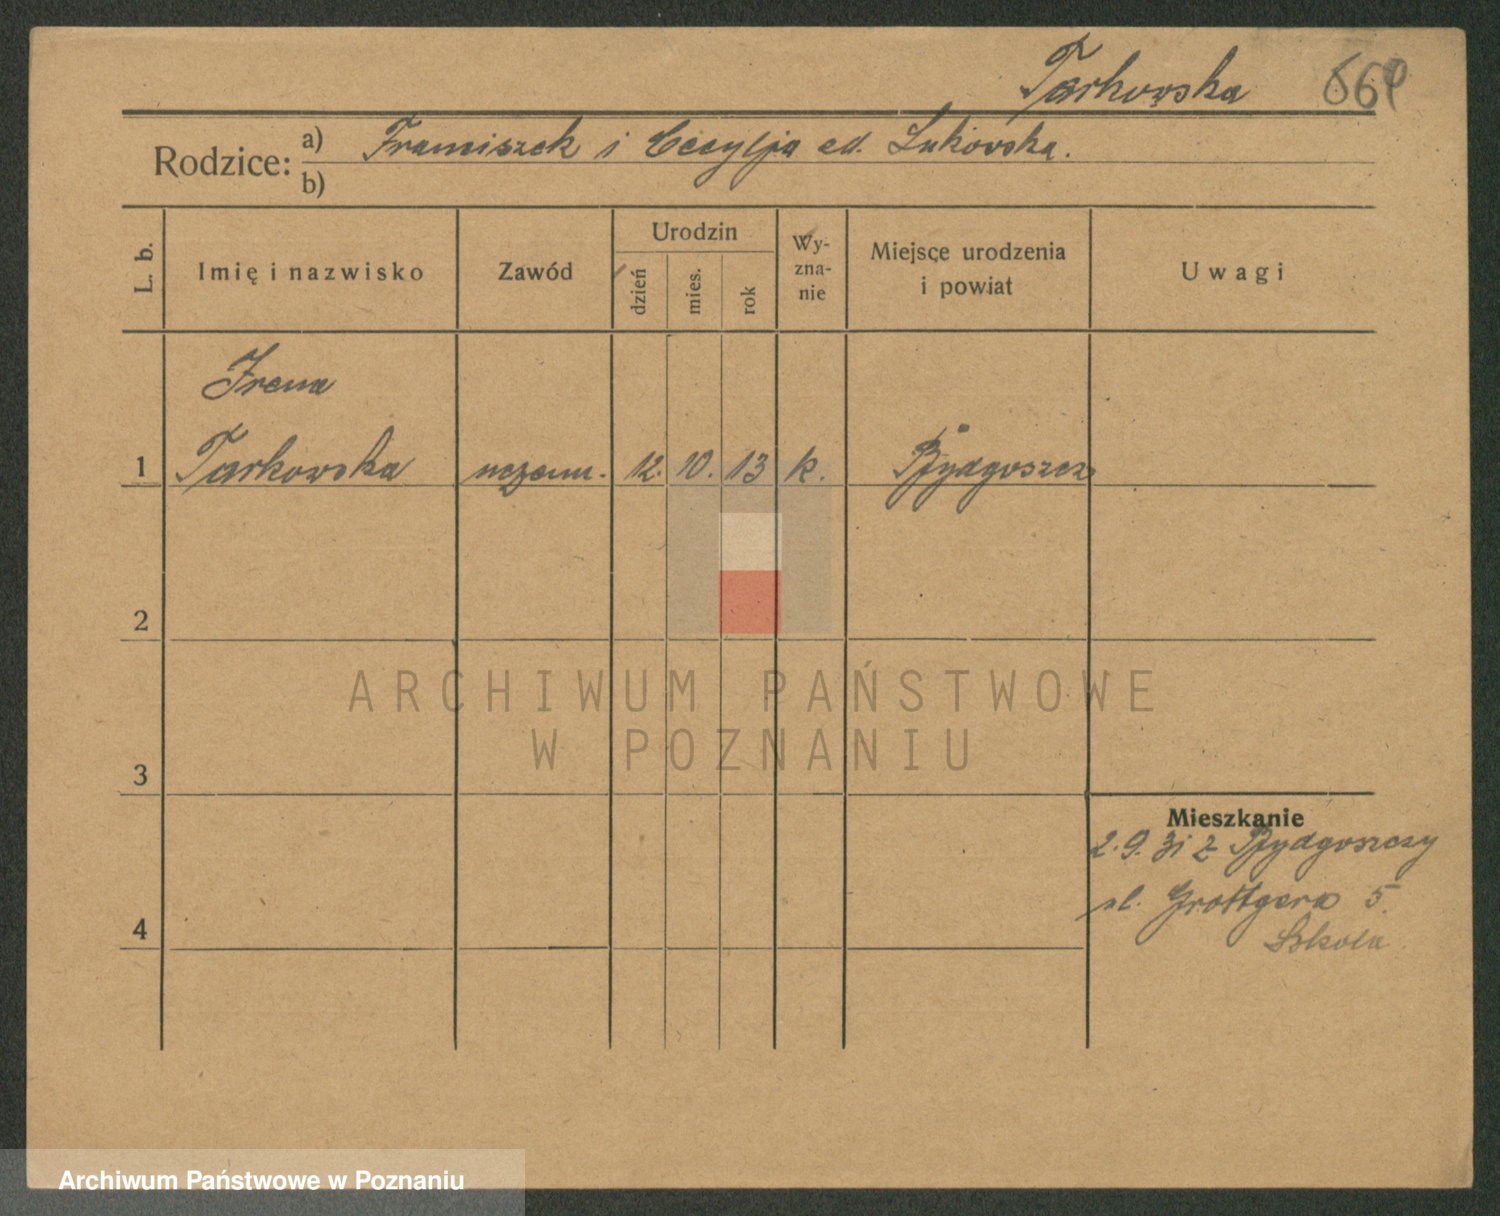 Tarkowska
Rodzice: a) Franciszek i Cecylja cd. Lukowska.
b)
L. b. Imię i nazwisko Zawód Urodzin dzień mies. rok Wy-zna-nie Miejsce urodzenia i powiat Uwagi
Irena
1 Tarkowska uczenn. 12. 10. 13 k. Bydgoszcz
2
ARCHIWUM PAŃSTWOWE
W POZNANIU
3
Mieszkanie
2.9.31 z Bydgoszczy
ul. Grottgera 5.
4
Szkoła
Archiwum Państwowe w Poznaniu